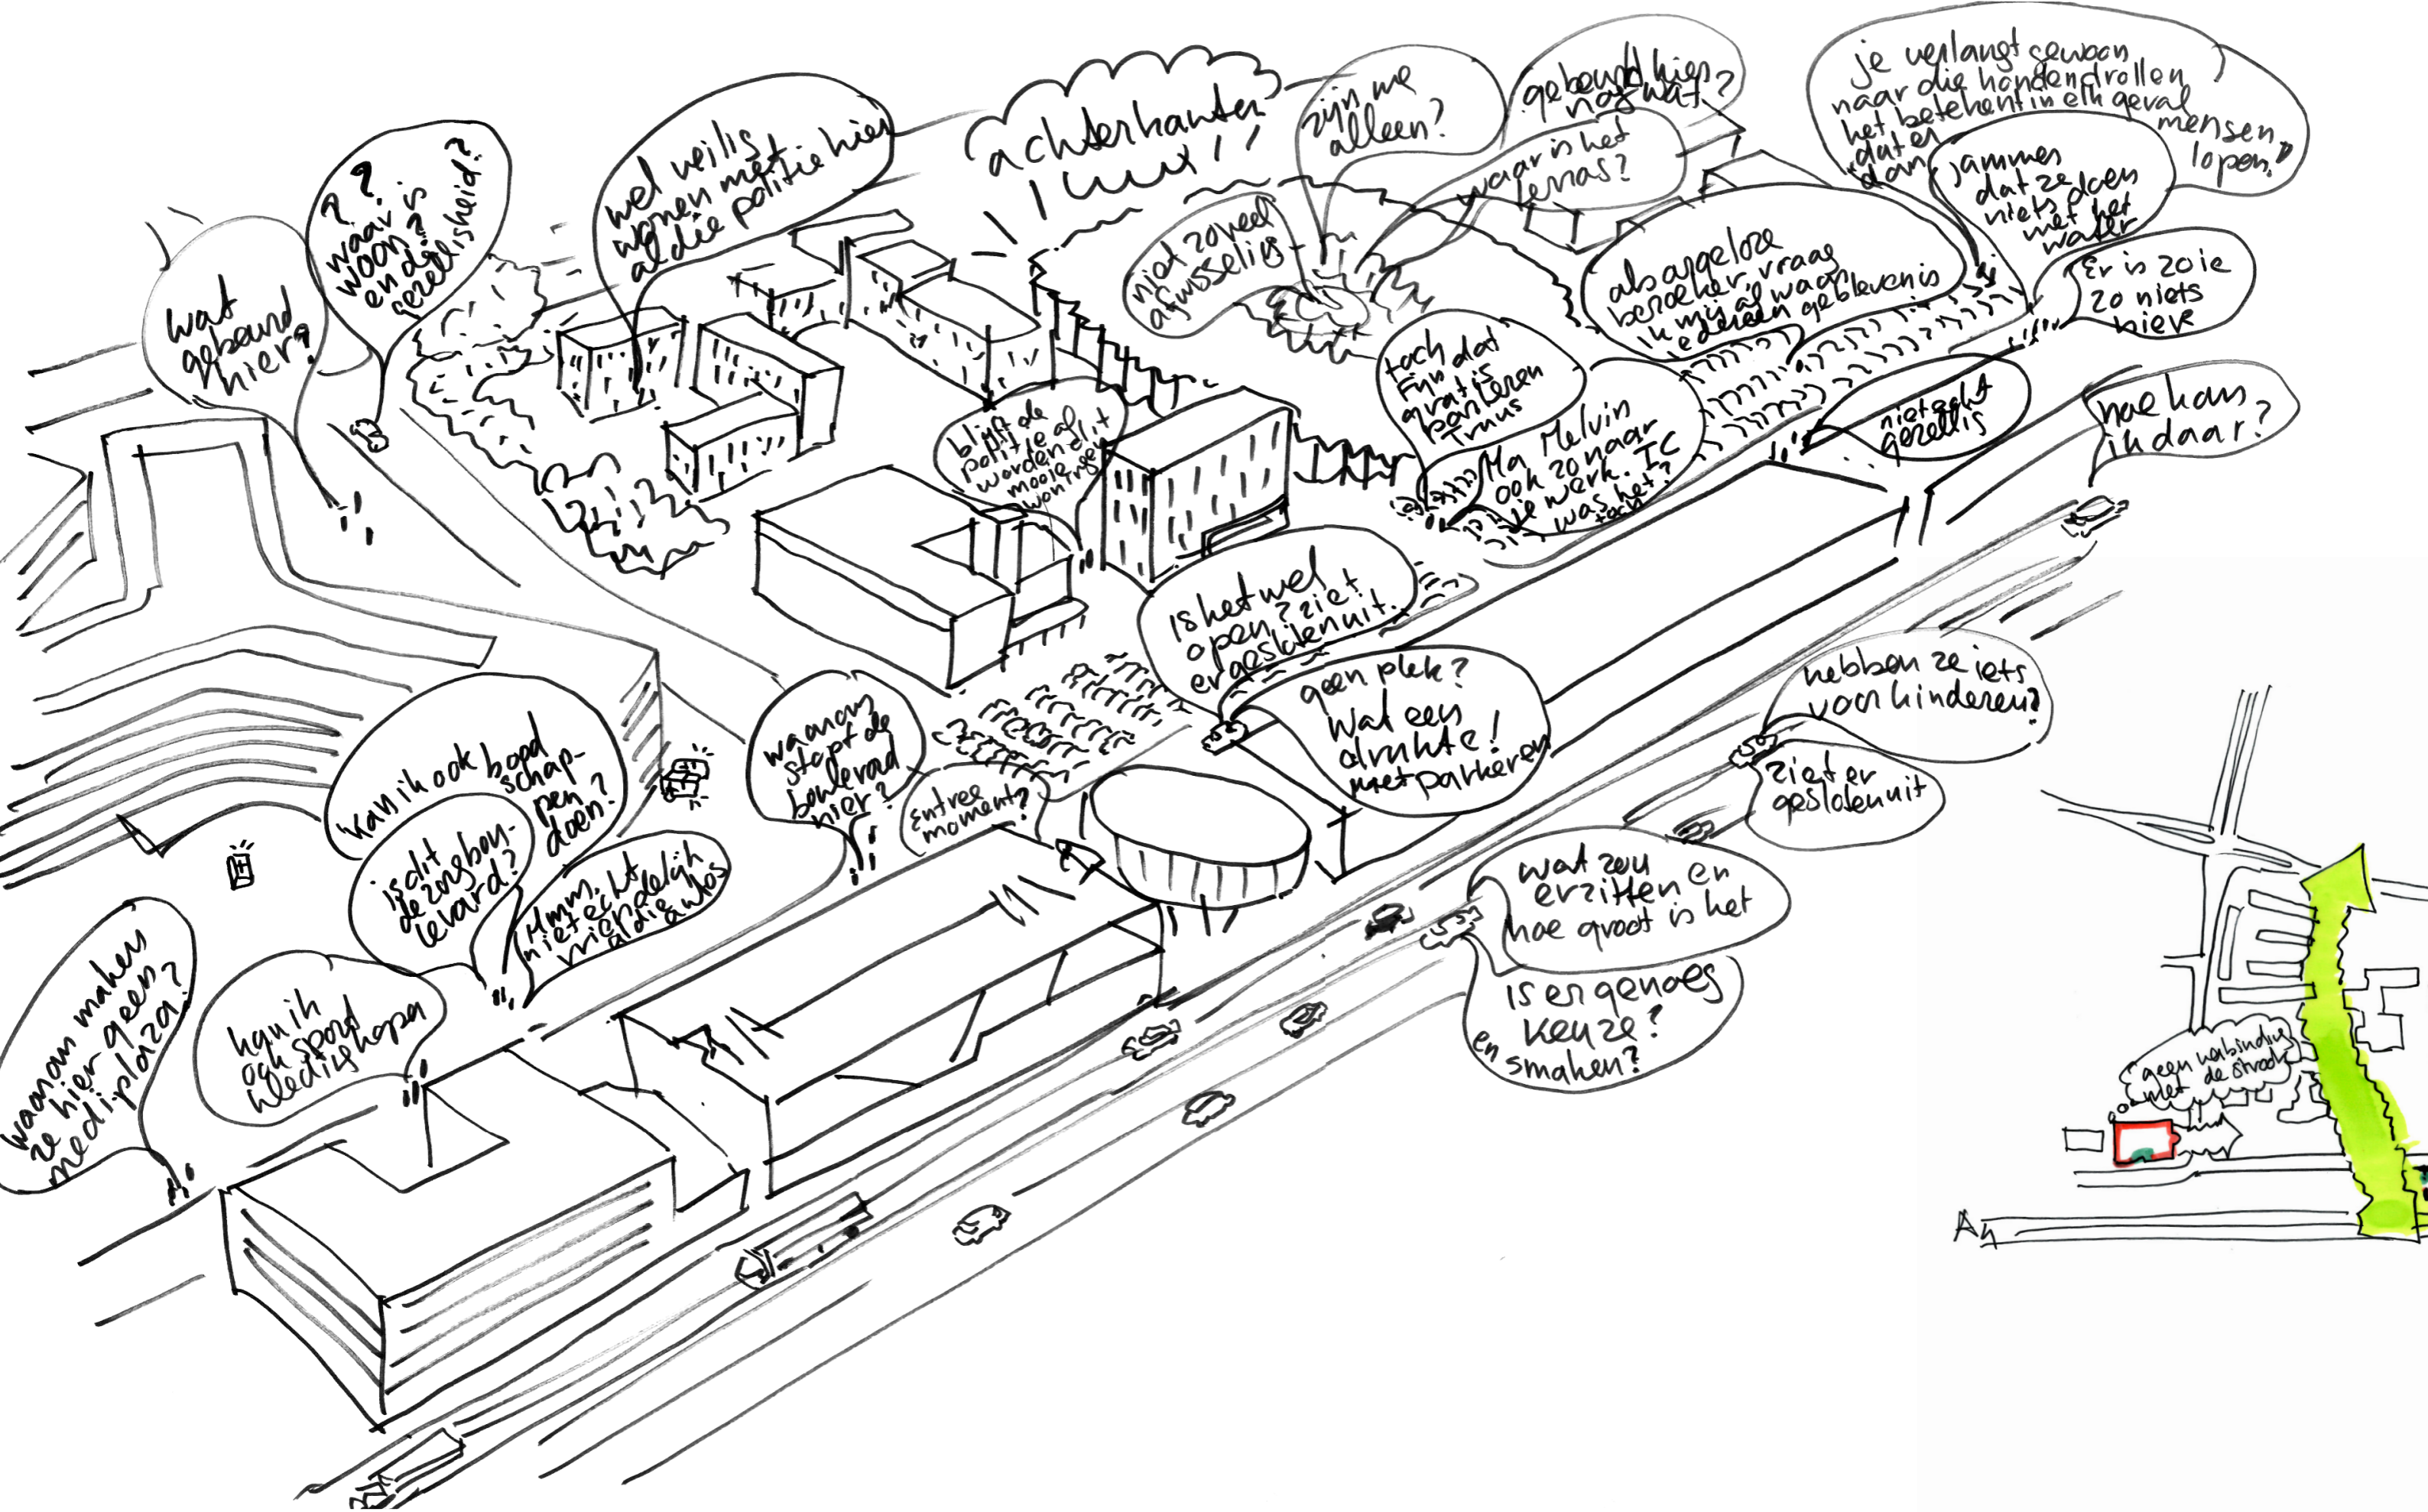 wat
gebeurd
hier?
? ?
waar is
woon?
en de
gezelligheid?
wel veilig
wonen met
al die politie hier
achterkanten
zijn we
alleen?
gebeurd hier
nog wat?
waar is het
terras?
je verlangt gewoon
naar die hondendrollen
het betekent in elk geval
dat er mensen
dan lopen?
jammer
dat ze
niets doen
met het
water
niet zoveel
afwisseling
als argeloze
bezoeker, vraag
ik mij af waar
iedereen gebleven is
Er is zoie
zo niets
hier
toch dat
Fijn
gratis
parkeren
Truus
Ma Melvin
ook zo naar
je werk. IC
was het?
toch
niet echt
gezellig
hoe kom
ik daar?
blijft de
politie of
worden dit
mooie
woningen
Is het wel
open? ziet
er gesloten uit.
geen plek?
Wat een
drukte!
met parkeren
hebben ze iets
voor kinderen?
ziet er
gesloten uit
waarom
stopt de
boulevard
hier?
Entree
moment?
kan ik ook bood
schap-
pen
doen?
is dit
de zorgbou-
levard?
Hmm, 
niet echt
vriendelijk
al die autos
wat zou
er zitten en
hoe groot is het
is er genoeg
keuze?
en smaken?
waarom maken
ze hier geen
mediplaza?
kan ik
ook sport
kleding kopen
geen verbinding
met de strook
A4